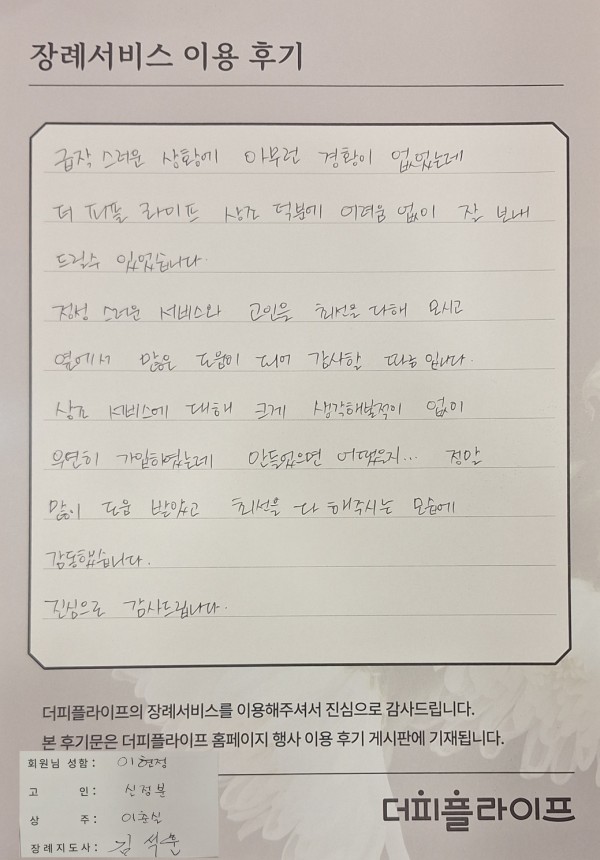 장례서비스 이용 후기
급작 스러운 상황에 아무런 경황이 없었는데
더 피플 라이프 상조 덕분에 어려움 없이 잘 보내
드릴수 있었습니다.
정성 스러운 서비스와 고인을 최선을 다해 모시고
옆에서 많은 도움이 되어 감사할 따름 입니다.
상조 서비스에 대해 크게 생각해본적이 없이
우연히 가입하였는데 안들었으면 어땠을지... 정말
많이 도움 받았고 최선을 다 해주시는 모습에
감동했습니다.
진심으로 감사드립니다.
더피플라이프의 장례서비스를 이용해주셔서 진심으로 감사드립니다.
본 후기문은 더피플라이프 홈페이지 행사 이용 후기 게시판에 기재됩니다.
회원님 성함 : 이현정
고 인 : 신정분
상 주 : 이춘실
장례지도사 : 김석훈
더피플라이프